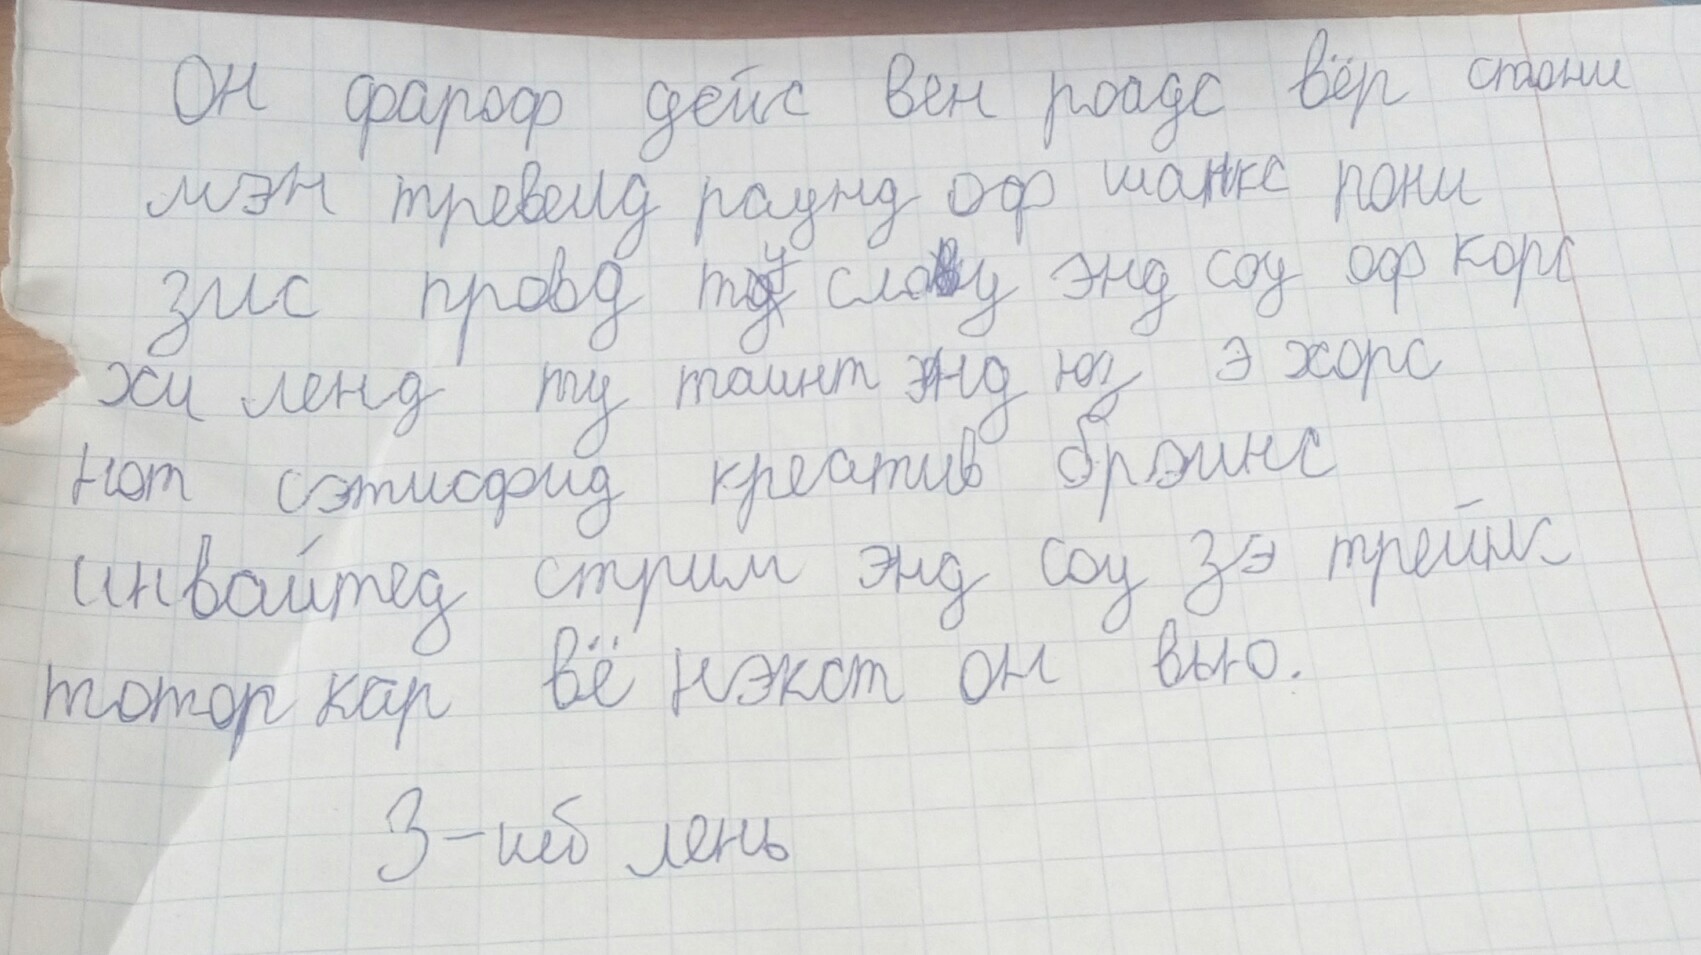 Он фароф дейс вен роадс вёр стони
мэн тревелд раунд оф шанкс пони
зис провд ту слоу энд соу оф корс
хи ленд ту таинт энд юз э хорс
нот сэтисфид креатив брэинс
инвайтед стрим энд соу зэ трейнс
тотор кар вё нэкст он вью.
лень